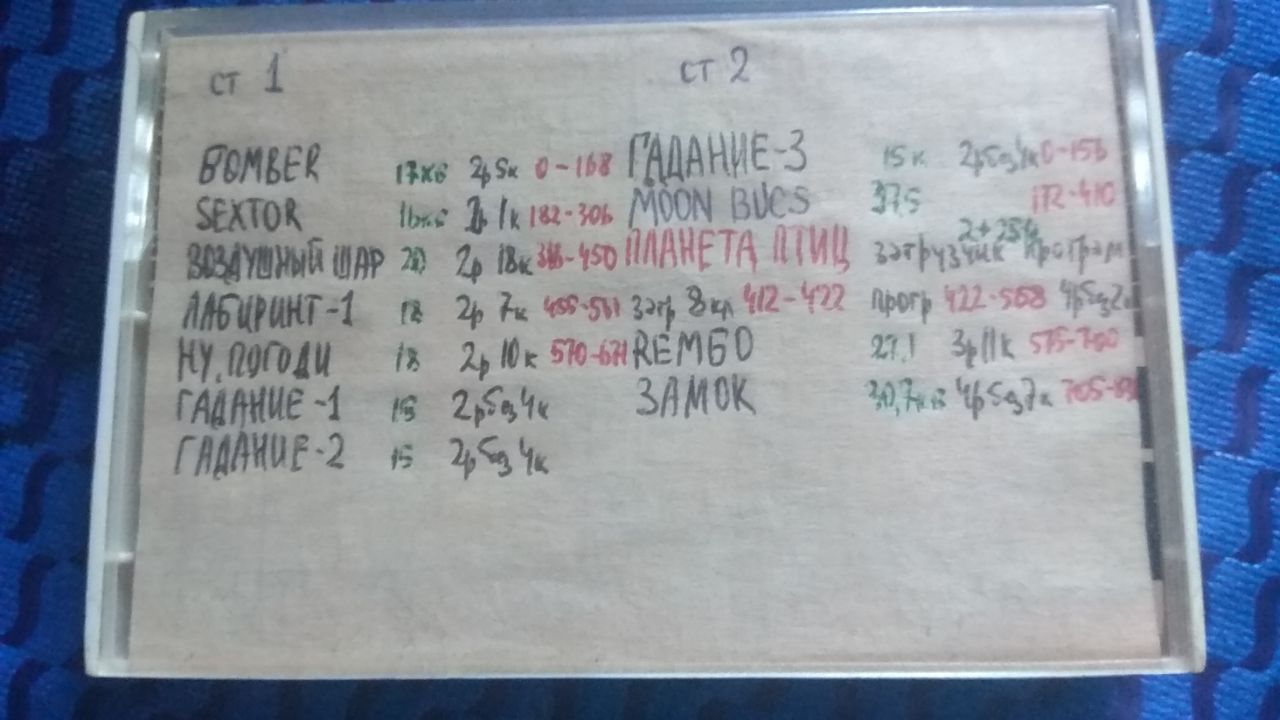 ст 1
BOMBER 17кб 2р 5к 0-168
SEXTOR 16кб 2р 1к 182-306
ВОЗДУШНЫЙ ШАР 20 2р 18к -450
ЛАБИРИНТ-1 18 2р 7к 455-561
НУ, ПОГОДИ 18 2р 10к 570-671
ГАДАНИЕ-1 15 2р5аз4к
ГАДАНИЕ-2 15 2р5аз4к
ст 2
ГАДАНИЕ-3 15к 2р5аз4к 0-156
MOON BUGS 37.5 172-410
ПЛАНЕТА ПТИЦ 2+25к загрузчик програм
загр 8кл 412-422 прогр 422-568
REMБО 27.1 3р11к 575-700
ЗАМОК 30,7кб 4р5аз7к